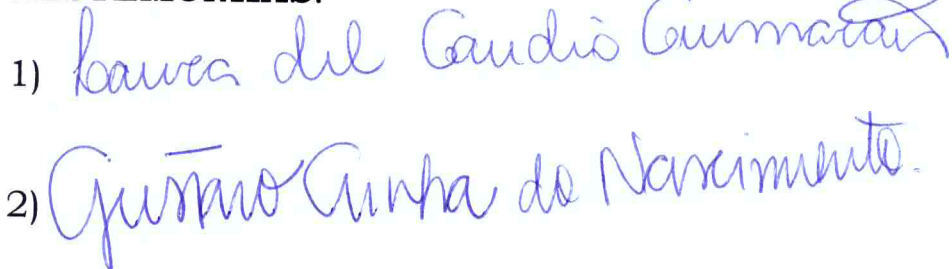 1) Laura del Caudio Guimarães
2) Gustavo Cunha do Nascimento.